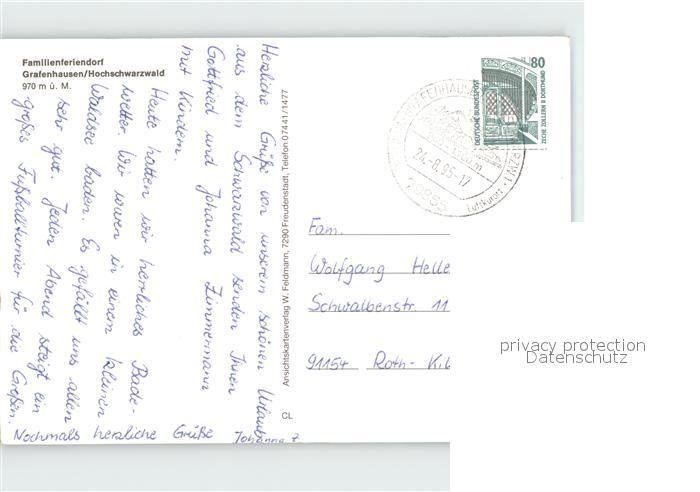 Familienferiendorf
Grafenhausen/Hochschwarzwald
970 m ü. M.
Herzliche Grüße von unserem schönen Urlaub
aus dem Schwarzwald senden Ihnen
Gottfried und Johanna Zimmermann
mit Kindern.
Heute hatten wir herrliches Bade-
wetter. Wir waren in einem kleinen
Waldsee baden. Es gefällt uns allen
sehr gut. Jeden Abend steigt ein
großes Fußballturnier für die Großen.
Nochmals herzliche Grüße Johanna Z.
Ansichtskartenverlag W. Feldmann, 7290 Freudenstadt, Telefon 07441/1477
CL
80
DEUTSCHE BUNDESPOST
ZECHE ZOLLERN II DORTMUND
GRAFENHAUSEN
24.-8.95-17
79865
Luftkurort
Fam.
Wolfgang Helle
Schwalbenstr. 11
91154 Roth-
privacy protection
Datenschutz